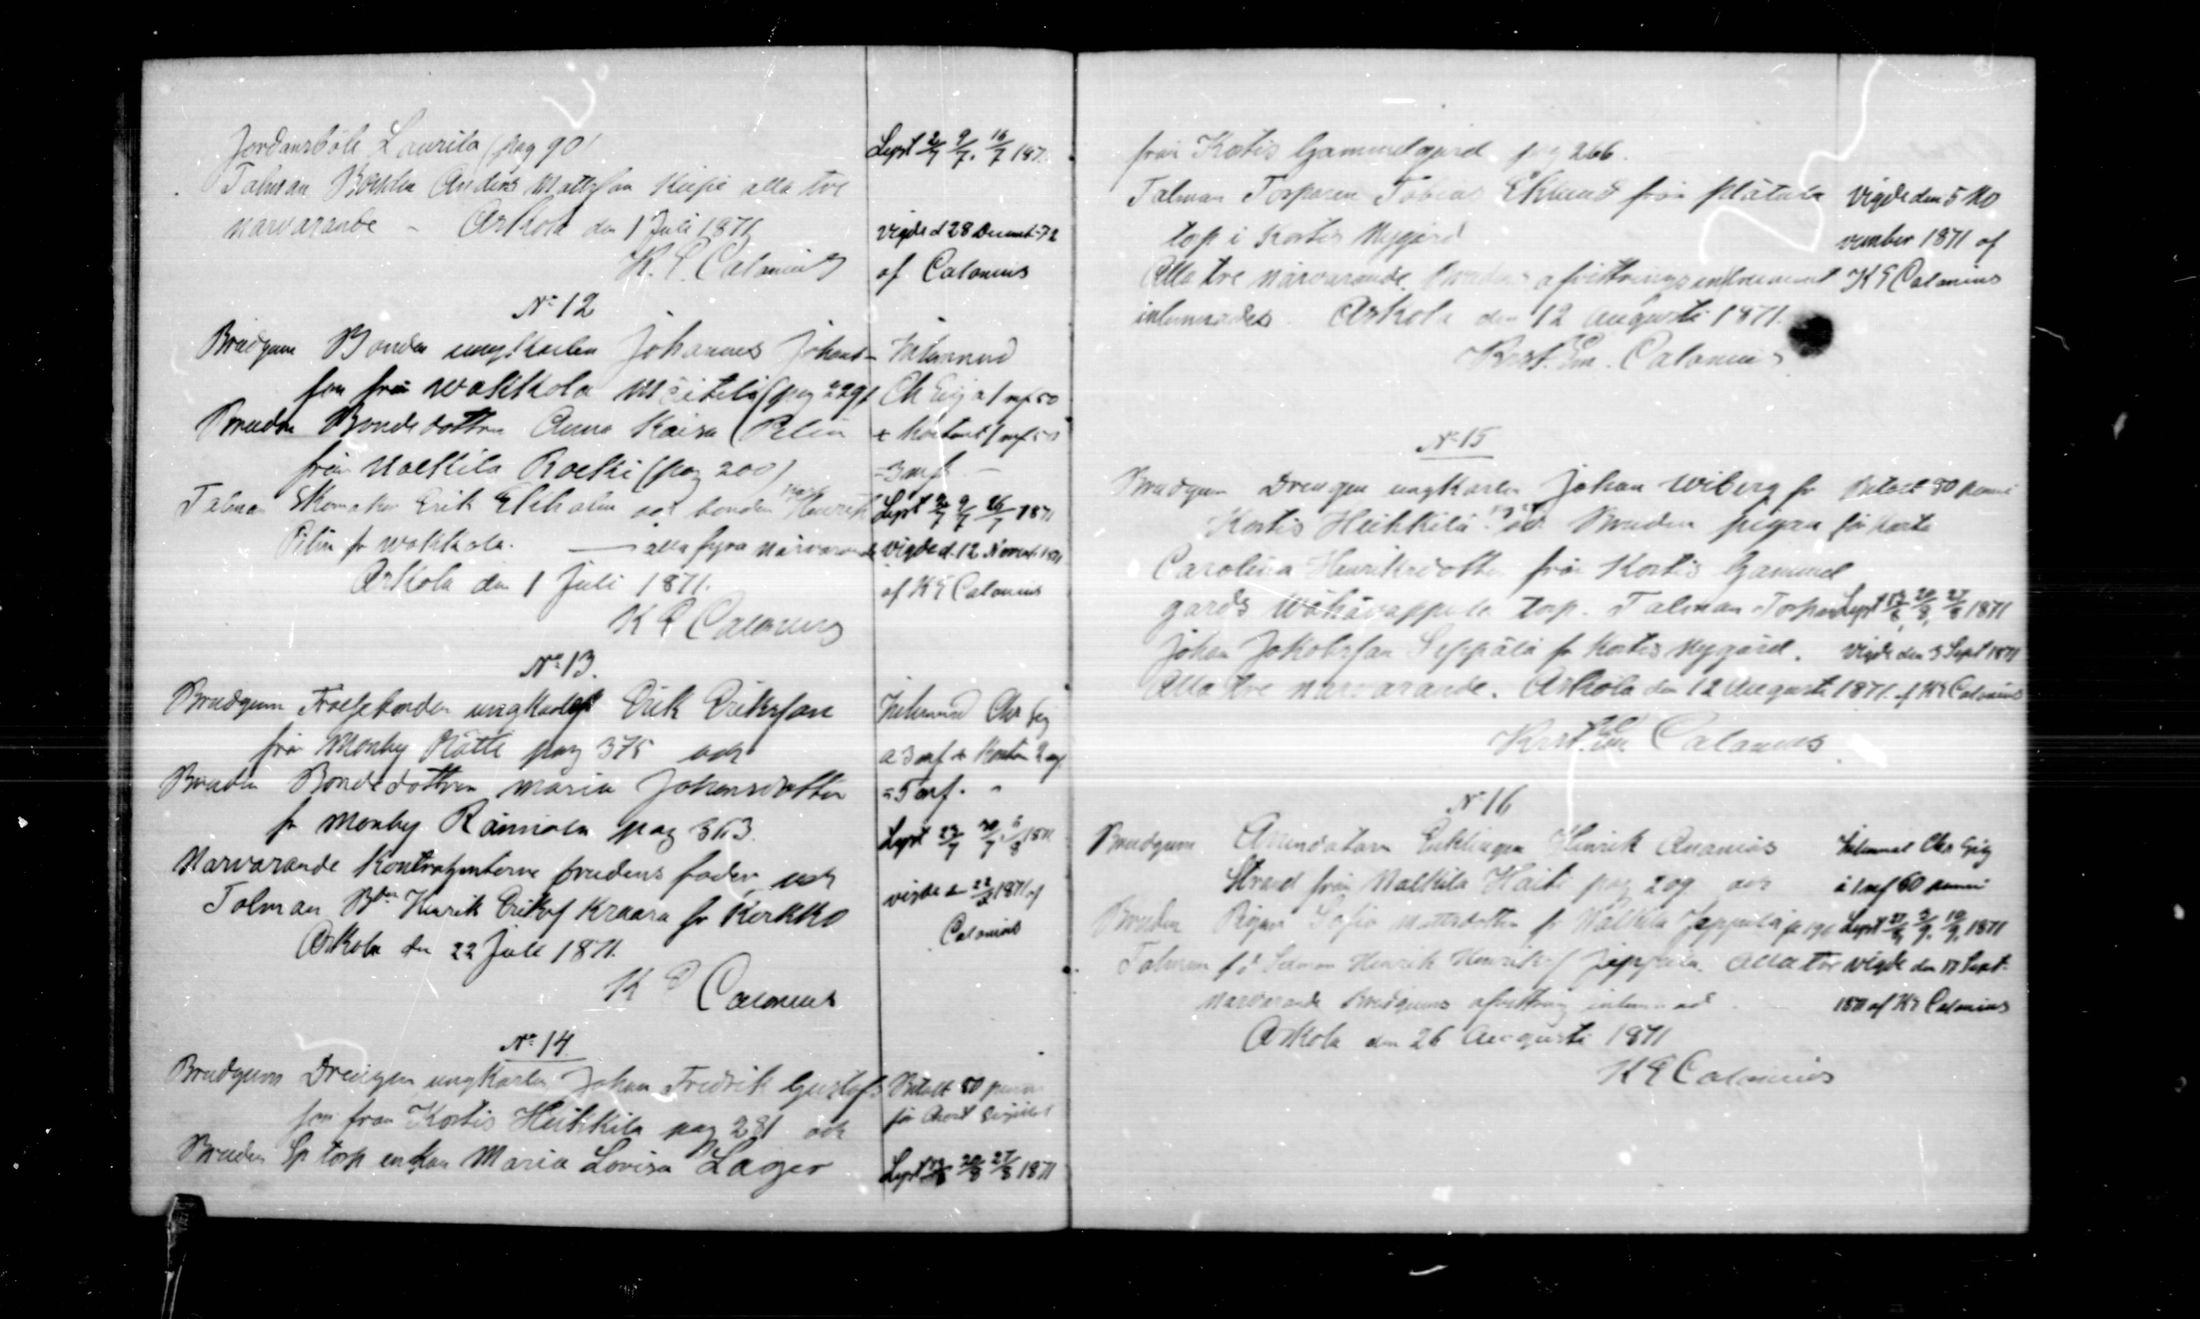 Jordansböle Laurila (pag 90)
Talman Bonden Anders Mattsson Kiepi alla tre
närvarande - Askola den 1 Juli 1871
K. E. Calonius
Lyst 2/7 9/7 16/7 187
vigde d 28 Decemb. 72
af Calonius
No 12
Brudgum Bonden ungkarlen Johannes Johans-
son från Wakkola Mäitilä (pag 229)
Bruden Bonde dottren Anna Kaisa Pelin
från Nalkkila Rocki (pag 200)
Talman Skomakar Erik Ekholm och bonden Henrik
Pilin fr Wakkola. — alla fyra närvarande
Askola den 1 Juli 1871.
K E Calonius
Inlemnad
Ch Sig a 1 mf 50
+ Kortont 1 mf 50
= 3 mf. —
Lyst 2/7 9/7 16/7 1871
vigde d. 12 Novemb 1871
af K E Calonius
No 13.
Brudgum Frelsebonden ungkarlen Erik Eriksson
från Monby Mätt pag 375 och
Bruden Bondedottren Maria Johansdotter
fr Monby Rännäla pag 363.
Närvarande Kontrahenterne brudens fader och
Talman Bdn Henrik Eriksf Kraara fr Kerkko
Askola den 22 Juli 1871.
K E Calonius
Inlemnad Cha Sig
a 3 mf + Korton 2 mf
= 5 mf. "
Lyst 23/7 30/7 6/8 1871
vigde d 1871 af
Calonius
No 14
Brudgum Drengen ungkarlen Johan Fredrik Gustafs
son från Kortis Heikkilä pag 281 och
Bruden Sp torp enkan Maria Lovisa Lager
Betalt 80 penni
för Chart Sigillat
Lyst 13/8 20/8 27/8 1871
från Kortis Gammelgård pag 266.
Talman Torparen Tobias Eklund från Plätala
torp i Kortis Nygård
Alla tre närvarande. afvittringsinstrument
inlemnades. Askola den 12 Augusti 1871.
Krist. Em. Calonius
Vigde den 5 No
vember 1871 af
K E Calonius
No 15
Brudgum Drengen ungkarlen Johan Wiberg fr
Kortis Heikkilä och Bruden pigan
Carolina Henriksdotter från Kortis Gammel
gårds torp. Talman Torparen
Johan Jakobsson Seppälä fr Kortis Nygård.
Alla tre närvarande. Askola den 12 Augusti 1871.
Krist. Em Calonius
Betalt 80 penni
för Karta
Lyst 13/8 20/8 27/8 1871
Vigde den 3 Sept 1871
af K E Calonius
No 16
Brudgum Arrendatorn Enklingen Henrik Ananias
Strand från Nalkila Haiti pag 209 och
Bruden Pigan Sofia Mattsdotter fr Nalkila Jeppilä p 190
Talman Henrik Henriksf Jeppilä. Alla tre
närvarande Brudgums afvittring inlemnad
Askola den 26 Augusti 1871
K E Calonius
Inlemnat Cha Sig
à 1 mf 60 penni
Lyst 27/8 3/9 10/9 1871
vigde den 17 Sept.
1871 af K E Calonius